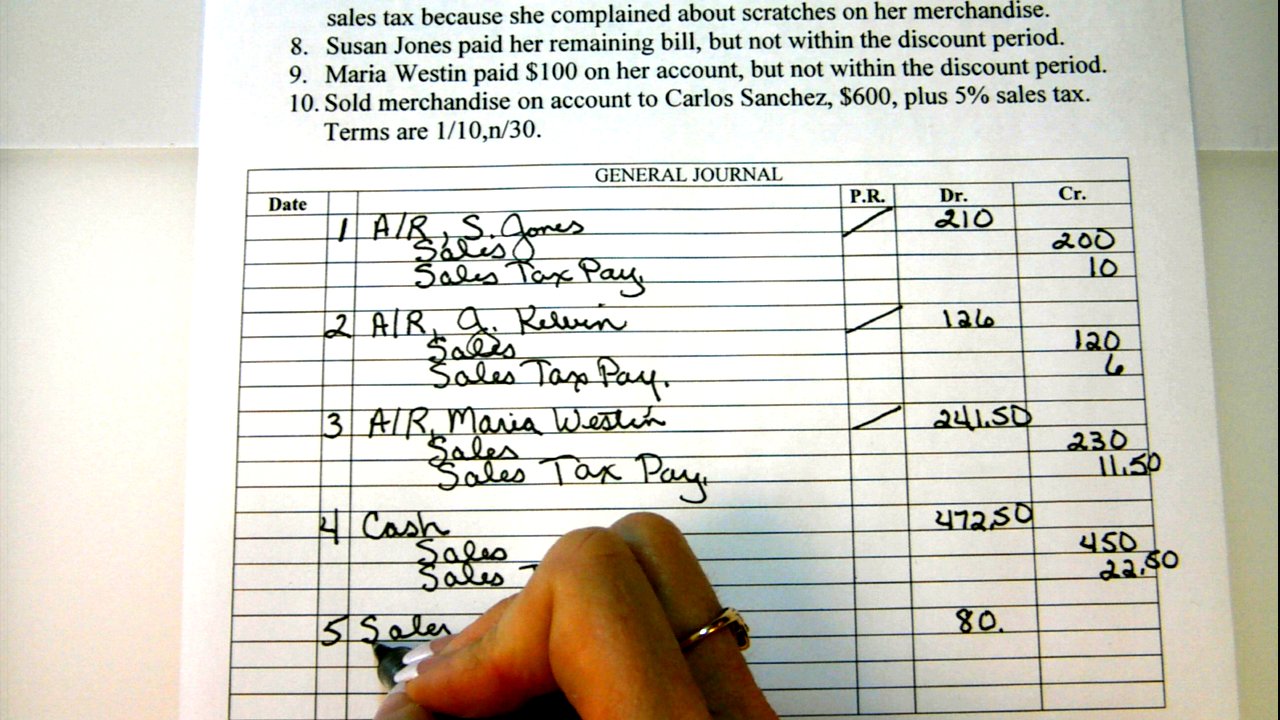 sales tax because she complained about scratches on her merchandise.
8. Susan Jones paid her remaining bill, but not within the discount period.
9. Maria Westin paid $100 on her account, but not within the discount period.
10. Sold merchandise on account to Carlos Sanchez, $600, plus 5% sales tax.
Terms are 1/10,n/30.
GENERAL JOURNAL
Date P.R. Dr. Cr.
1 A/R, S. Jones 210
Sales 200
Sales Tax Pay. 10
2 A/R, J. Kelvin 126
Sales 120
Sales Tax Pay. 6
3 A/R, Maria Westin 241.50
Sales 230
Sales Tax Pay. 11.50
4 Cash 472.50
Sales 450
Sales T 22.50
5 Sales 80.